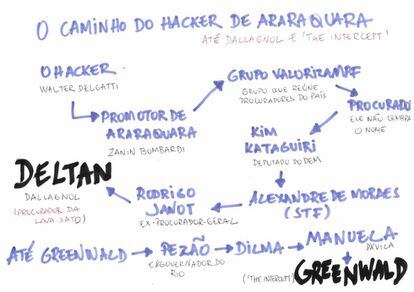 O CAMINHO DO HACKER DE ARARAQUARA
ATÉ DALLAGNOL E 'THE INTERCEPT'
O HACKER
WALTER DELGATTI
PROMOTOR DE
ARARAQUARA
ZANIN BOMBARDI
GRUPO VALORIZAMPF
GRUPO QUE REÚNE
PROCURADORES DO PAÍS
PROCURADO
ELE NÃO LEMBRA
O NOME
KIM
KATAGUIRI
DEPUTADO DO DEM
ALEXANDRE DE MORAES
(STF)
RODRIGO
JANOT
EX-PROCURADOR-GERAL
DELTAN
DALLAGNOL
(PROCURADOR DA
LAVA JATO)
ATÉ GREENWALD
PEZÃO
EX GOVERNADOR DO
RIO
DILMA
MANUELA
D'ÁVILA
+
('THE INTERCEPT')
GREENWALD